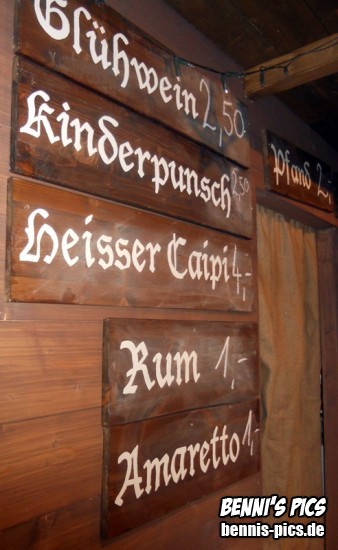 Glühwein 2,50
Kinderpunsch 2,50
Heisser Caipi 4,-
Rum 1,-
Amaretto 1,-
Pfand 2,-
BENNI'S PICS
bennis-pics.de